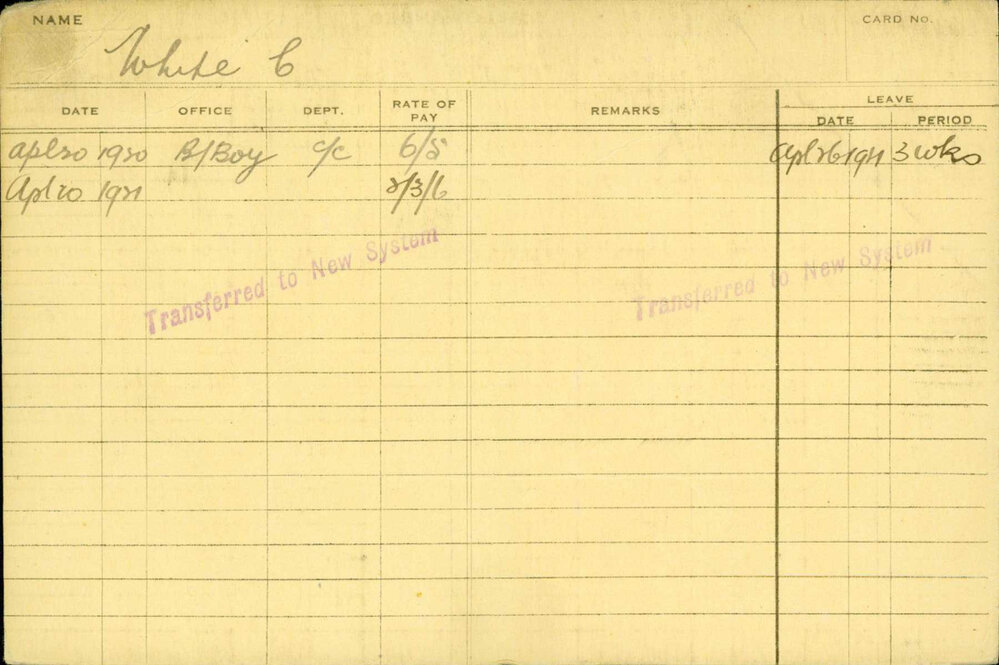 NAME
CARD No.
White C
DATE OFFICE DEPT. RATE OF PAY REMARKS LEAVE
DATE PERIOD
apl 20 1920 B/Boy c/c 6/5 Apl 26 1921 3 wks
Apl 20 1921 2/3/6
Transferred to New System
Transferred to New System